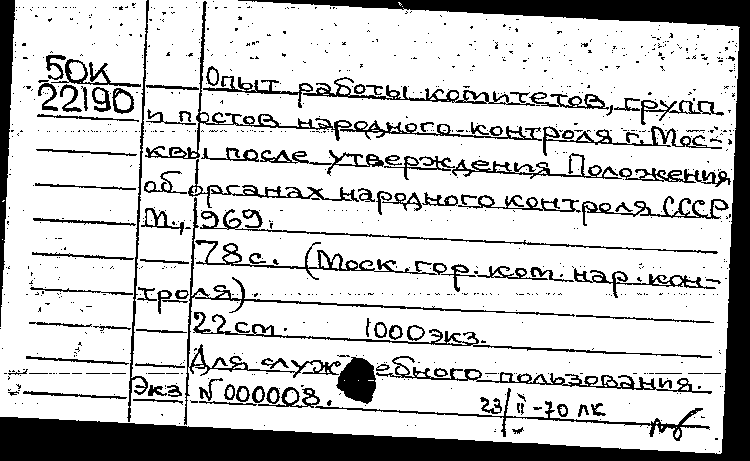 50К
22190
Опыт работы комитетов, групп
и постов народного контроля г. Мос-
квы после утверждения Положения
об органах народного контроля СССР
М., 1969.
78 с. (Моск. гор. ком. нар. кон-
троля).
22 см. 1000 экз.
Для служебного пользования.
Экз N 000008.
23/II-70 лк